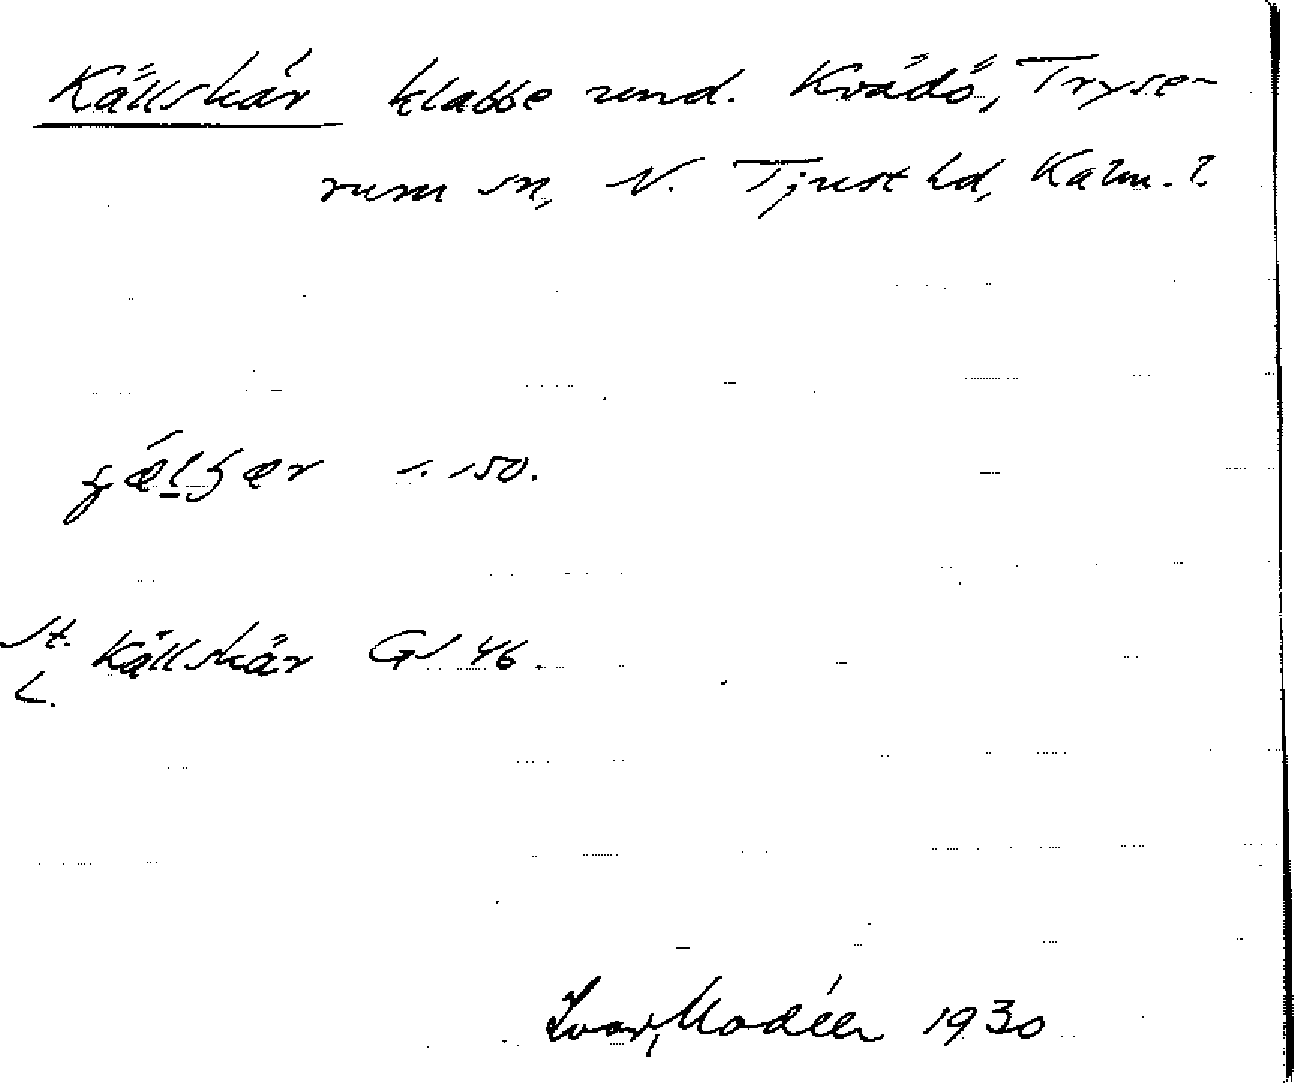 Källskär klabbe und. Kvädö, Tryse-
rum sn, N. Tjust hd, Kalm. l.
s. 150.
St.
Källskär GS 46.
L.
Ivar Modéer 1930